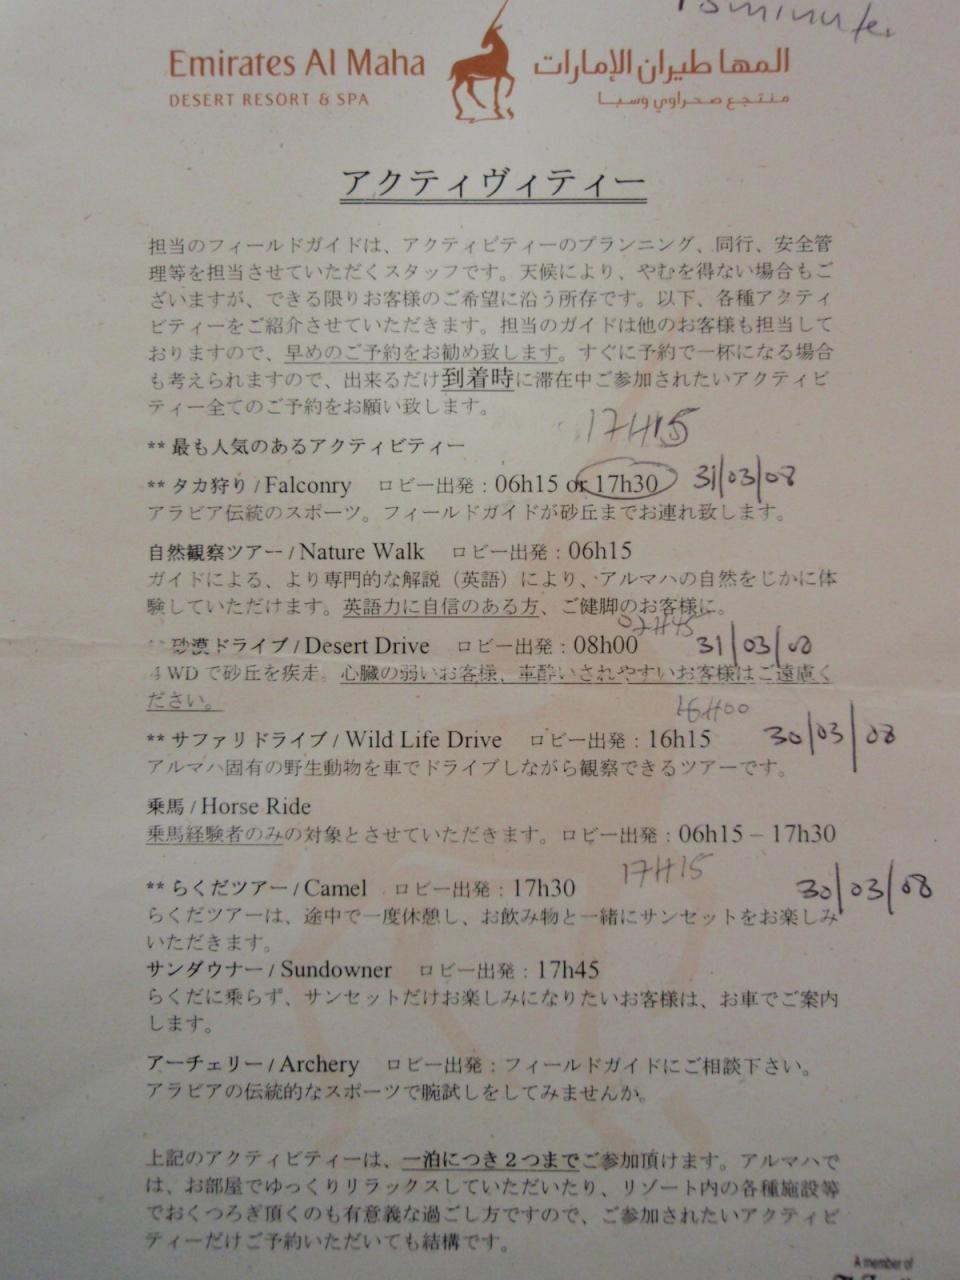 15 minutes
Emirates Al Maha
DESERT RESORT & SPA
المها طيران الإمارات
منتجع صحراوي وسبا
アクティヴィティー
担当のフィールドガイドは、アクティビティーのプランニング、同行、安全管
理等を担当させていただくスタッフです。天候により、やむを得ない場合もご
ざいますが、できる限りお客様のご希望に沿う所存です。以下、各種アクティ
ビティーをご紹介させていただきます。担当のガイドは他のお客様も担当して
おりますので、早めのご予約をお勧め致します。すぐに予約で一杯になる場合
も考えられますので、出来るだけ到着時に滞在中ご参加されたいアクティビ
ティー全てのご予約をお願い致します。
17H15
** 最も人気のあるアクティビティー
** タカ狩り / Falconry ロビー出発 : 06h15 or 17h30 31/03/08
アラビア伝統のスポーツ。フィールドガイドが砂丘までお連れ致します。
自然観察ツアー / Nature Walk ロビー出発 : 06h15
ガイドによる、より専門的な解説（英語）により、アルマハの自然をじかに体
験していただけます。英語力に自信のある方、ご健脚のお客様に。
07H45
** 砂漠ドライブ / Desert Drive ロビー出発 : 08h00 31/03/08
4WD で砂丘を疾走。心臓の弱いお客様、車酔いされやすいお客様はご遠慮く
ださい。
16H00
** サファリドライブ / Wild Life Drive ロビー出発 : 16h15 30/03/08
アルマハ固有の野生動物を車でドライブしながら観察できるツアーです。
乗馬 / Horse Ride
乗馬経験者のみの対象とさせていただきます。ロビー出発 : 06h15 – 17h30
17H15
** らくだツアー / Camel ロビー出発 : 17h30 30/03/08
らくだツアーは、途中で一度休憩し、お飲み物と一緒にサンセットをお楽しみ
いただきます。
サンダウナー / Sundowner ロビー出発 : 17h45
らくだに乗らず、サンセットだけお楽しみになりたいお客様は、お車でご案内
します。
アーチェリー / Archery ロビー出発 : フィールドガイドにご相談下さい。
アラビアの伝統的なスポーツで腕試しをしてみませんか。
上記のアクティビティーは、一泊につき２つまでご参加頂けます。アルマハで
は、お部屋でゆっくりリラックスしていただいたり、リゾート内の各種施設等
でおくつろぎ頂くのも有意義な過ごし方ですので、ご参加されたいアクティビ
ティーだけご予約いただいても結構です。
A member of